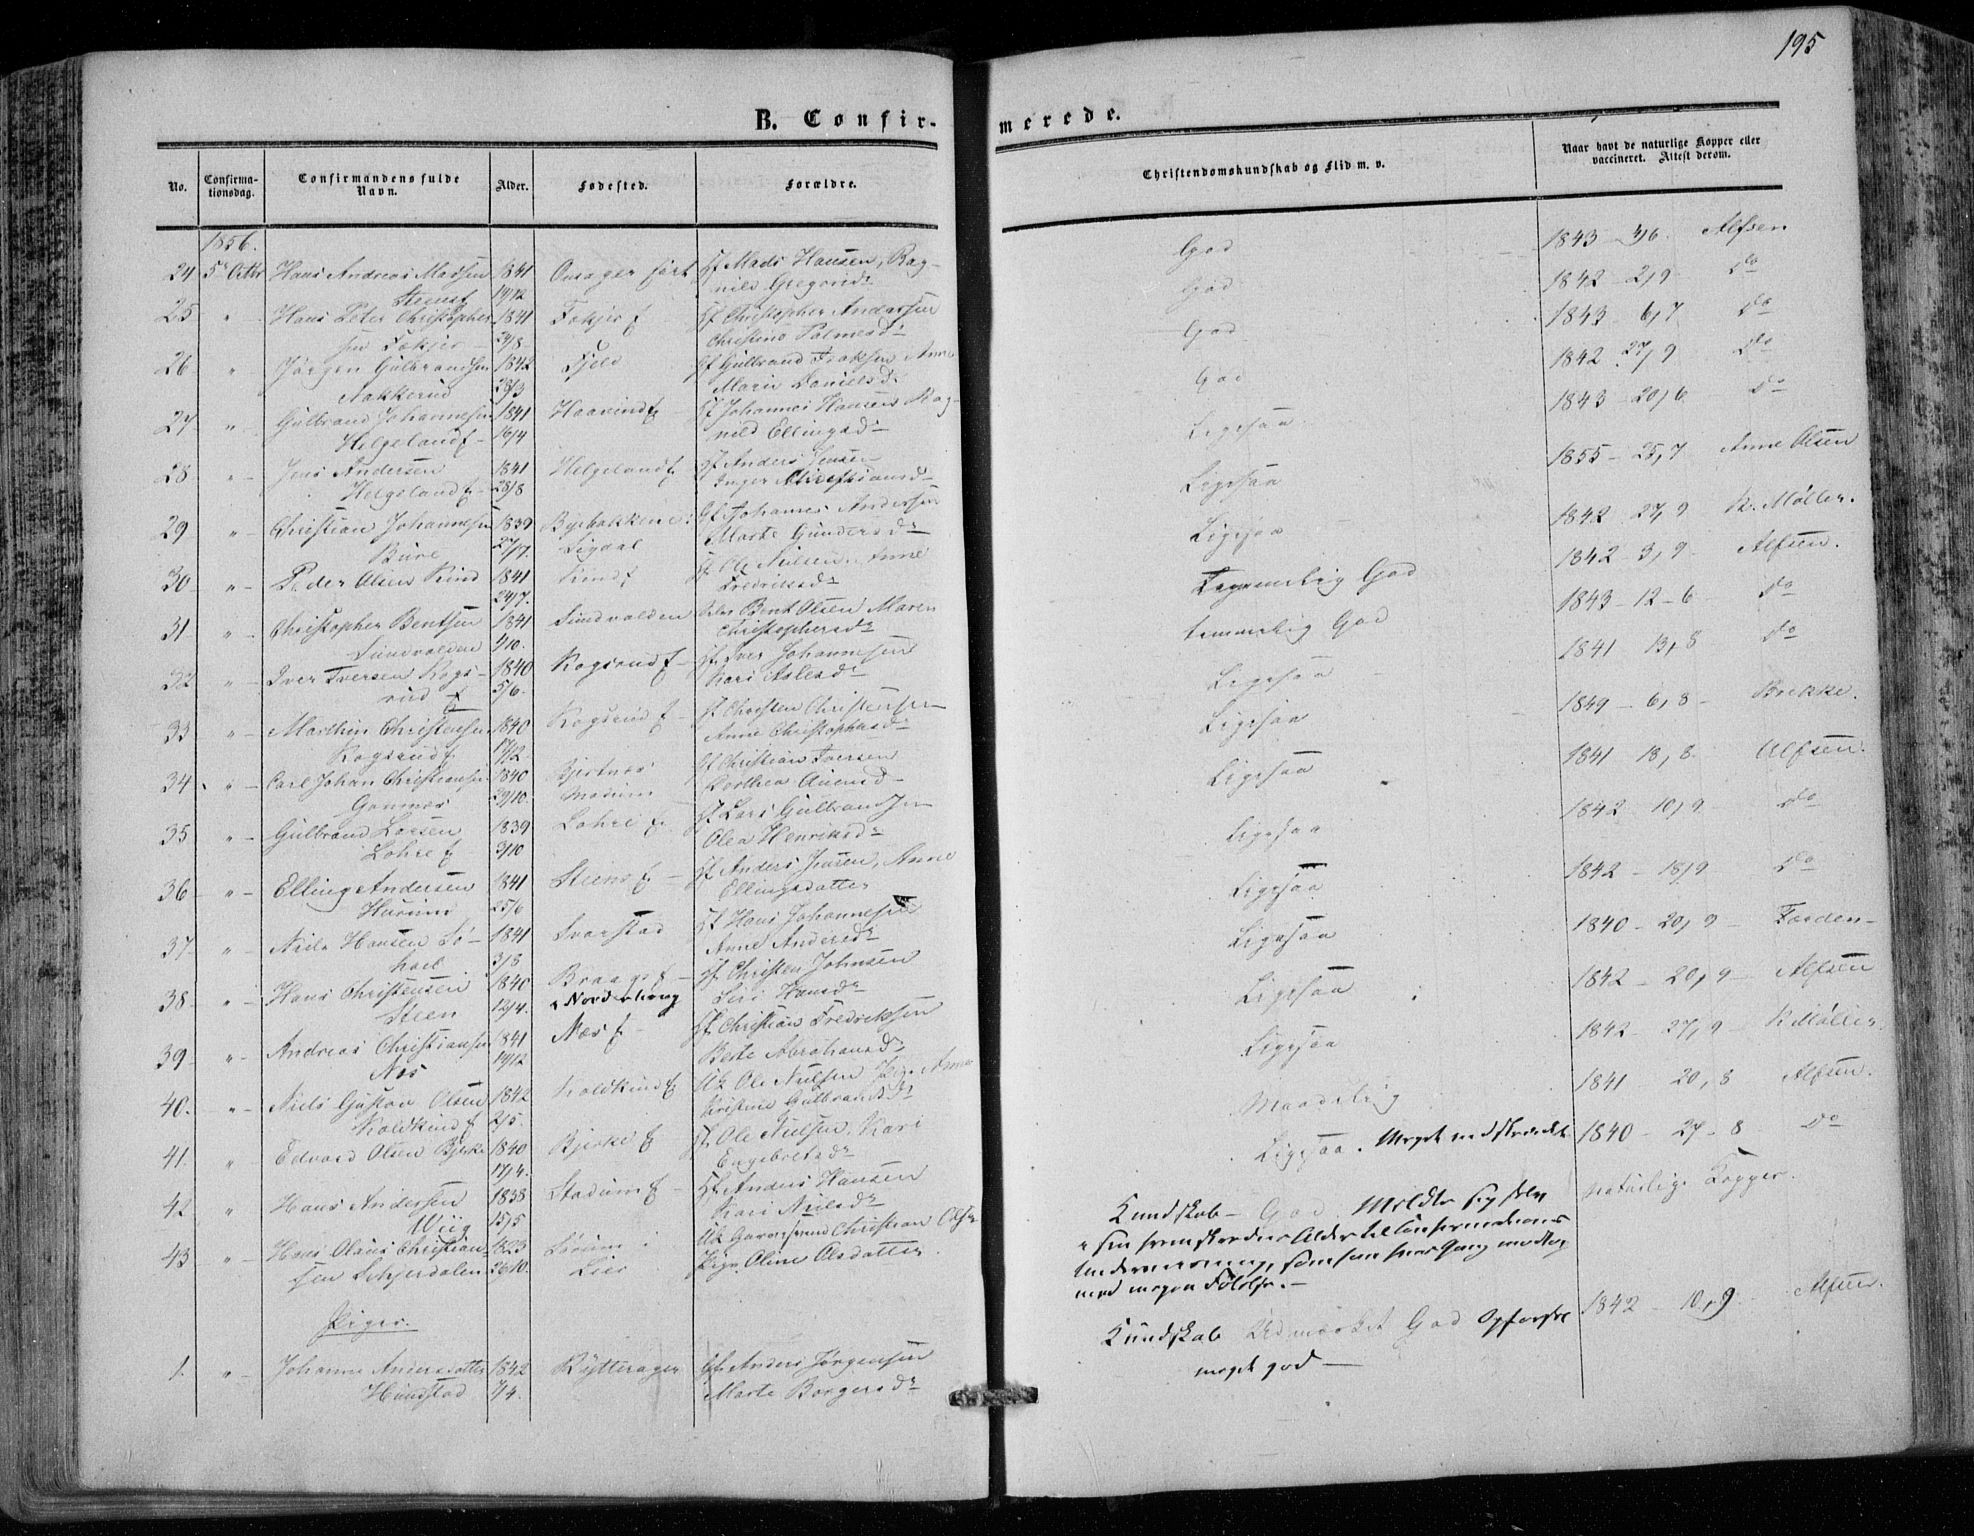 195
B. Confir-
merede.
No.
Confirma-
tionsdag.
Confirmandens fulde
Navn.
Alder.
Fødested.
Forældre.
Christendomskundskab og Flid m. v.
Naar havt de naturlige Kopper eller
vaccineret. Attest derom.
1856.
24 5te Octbr Hans Andreas Madsen 1841 Onsager Hf Mads Hansen, Rag-
14/12 nild Gregersd
God 1843 Alfsen
25 " Hans Peter Christopher 1841 Fokjer f Hf Christopher Andersen
sen Fokjer 24/8 Christine Palmesd
God 1842 - 2/9 Do
26 " Jørgen Gulbrandsen 1842 Fjeld Gf Gulbrand Anne
Nakkerud 28/3 Marie Danielsd
God 1843 - 6/7 Do
27 " Gulbrand Johannesen 1841 Haavind f Hf Johannes Hansen Rag-
Helgeland f 16/4 nild Ellingsd
God 1842 27/9 Do
28 " Jens Andersen 1841 Helgeland f Hf Anders Jensen
Helgeland f 28/8 Inger Christiansd
Ligesaa 1843 - 20/6 Do
29 " Christian Johannesen 1839 Byebakken i Gf Johannes Andersen
Bure 27/7. Sigdal Marte Gundersd
Ligesaa 1855 - 25/7 Anne Olsen
30 " Peder Olsen Rind 1841 Rind f Hf Ole Nielsen, Anne
24/7. Fredriksd
Ligesaa 1842 - 27/9 R. Møller.
31 " Christopher Bentsen 1841 Sundvolden Bent Olsen Maren
Sundvolden 4/10. Christophersd
Temmelig God 1842 - 3/9 - Alfsen.
32 " Iver Iversen Rogs- 1840 Rogsrud f Hf Iver Johannesen
rud f 5/6. Kari Aslesd
temmelig God 1843 - 12 - 6 Do
33 " Marthin Christensen 1840 Rogsrud f - Hf Christen Christensen
Rogsrud f 17/12 Anne Christophersd
Ligesaa 1841 13/8 Do
34 " Carl Johan Christiansen 1840 Bjertnes Gf Christian Iversen
Gomnæs 29/10. Modum Dorthea
Ligesaa 1849 - 6/8 - Brekke.
35 " Gulbrand Larsen 1839 Lohre f Hf Lars Gulbrandsen
Lohre f 3/10 Olea Henriksd
Ligesaa 1841 18/8. Alfsen.
36 " Elling Andersen 1841 Steens f Hf Anders Jensen, Anne
Hurum 25/6 Ellingsdatter
Ligesaa 1842 - 10/9 Do
37 " Niels Hansen Sø- 1841 Svarstad Hf Hans Johannesen
hoel 3/8 Anne Andersd
Ligesaa 1842 - 18/9 Do
38 " Hans Christensen 1840 Braages f Hf Christen Johnsen
Steen 12/4. Norderhoug Siri Hansd
Ligesaa 1840 - 20/9 -
39 " Andreas Christiansen 1841 Næs f - Hf Christian Fredriksen
Næs 14/12 Berte Abrahamsd
Ligesaa 1842 - 20/9 - Alfsen
40. " Niels Gustav Olsen 1842 Koldkind f Uk Ole Nielsen Pige Anne
Koldkind f 2/5. Kirstine Gulbrandsd
Ligesaa 1842 - 27/9 - R Møller.
41. " Edvard Olsen Bjerke 1840 Bjerke f Hf Ole Nielsen, Kari
17/4. Engebretsd
Maadelig 1841 20/8 Alfsen.
42 " Hans Andersen 1838 Stadum f - Hf Anders Hansen
Wiig 15/5 Kari Nielsd
Ligesaa. Meget 1840 - 27 - 8 Do
43 " Hans Olaus Christian- 1823 Sørum i Uk Christian Olsen
sen Schjerdalen 26/10. Lier Pige Oline Olsdatter
Kundskab - God. Meldte sig selv naturlige Kopper.
i sin fremskredne Alder til Confirmations
Underviisning,
med megen Følelse. -
Piger.
1. " Johanne Andersdatter 1842 Rytterager Gf Anders Jørgensen
Hundstad 7/4. Marte Borgersd
Kundskab Udmærket God Opførsel 1842 - 10/9 - Alfsen.
meget god -